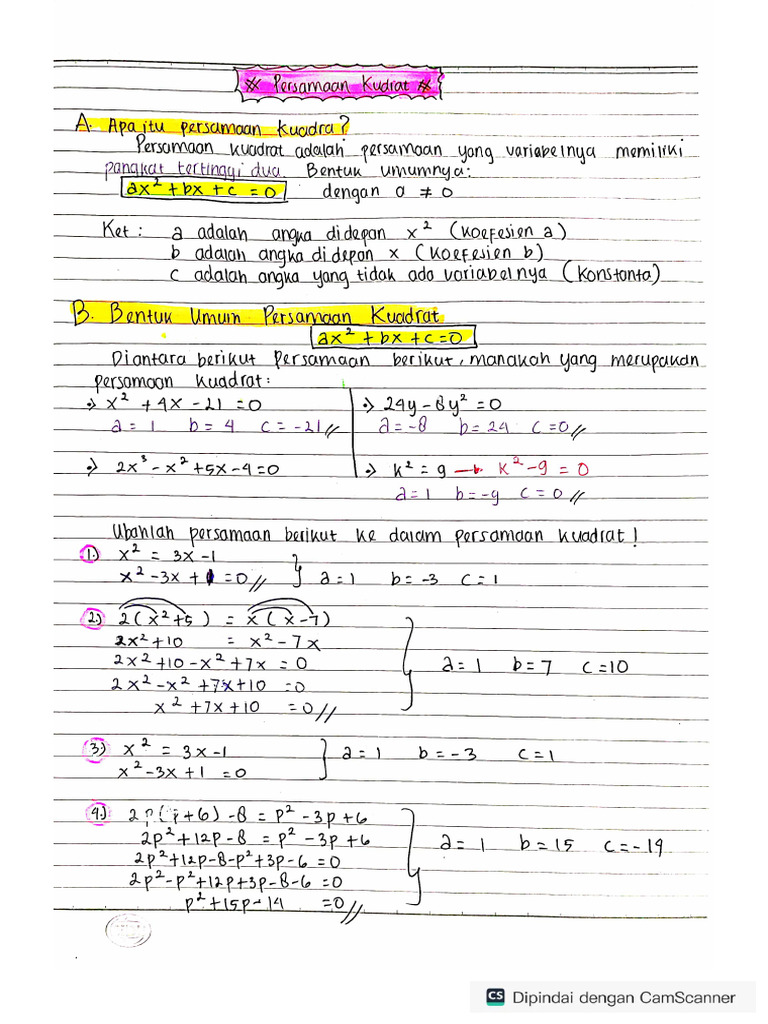 ** Persamaan Kudrat **
A. Apa itu persamaan kuadra?
Persamaan kuadrat adalah persamaan yang variabelnya memiliki
pangkat tertinggi dua. Bentuk umumnya:
ax² + bx + c = 0 dengan a ≠ 0
Ket : a adalah angka didepan x² (koefesien a)
b adalah angka didepan x (koefesien b)
c adalah angka yang tidak ada variabelnya (konstanta)
B. Bentuk Umum Persamaan Kuadrat
ax² + bx + c = 0
Diantara berikut persamaan berikut, manakah yang merupakan
persamaan kuadrat:
:) x² + 4x - 21 = 0
a = 1 b = 4 c = -21 //
:) 2x³ - x² + 5x - 4 = 0
:) 24y - 8y² = 0
a = -8 b = 24 c = 0 //
:) k² = 9 → k² - 9 = 0
a = 1 b = -9 c = 0 //
Ubahlah persamaan berikut ke dalam persamaan kuadrat !
1.) x² = 3x - 1
x² - 3x + 1 = 0 // } a = 1 b = -3 c = 1
2.) 2(x² + 5) = x(x - 7)
2x² + 10 = x² - 7x
2x² + 10 - x² + 7x = 0 } a = 1 b = 7 c = 10
2x² - x² + 7x + 10 = 0
x² + 7x + 10 = 0 //
3.) x² = 3x - 1 } a = 1 b = -3 c = 1
x² - 3x + 1 = 0
4.) 2p(p + 6) - 8 = p² - 3p + 6
2p² + 12p - 8 = p² - 3p + 6 } a = 1 b = 15 c = -19
2p² + 12p - 8 - p² + 3p - 6 = 0
2p² - p² + 12p + 3p - 8 - 6 = 0
p² + 15p - 14 = 0 //
CS Dipindai dengan CamScanner